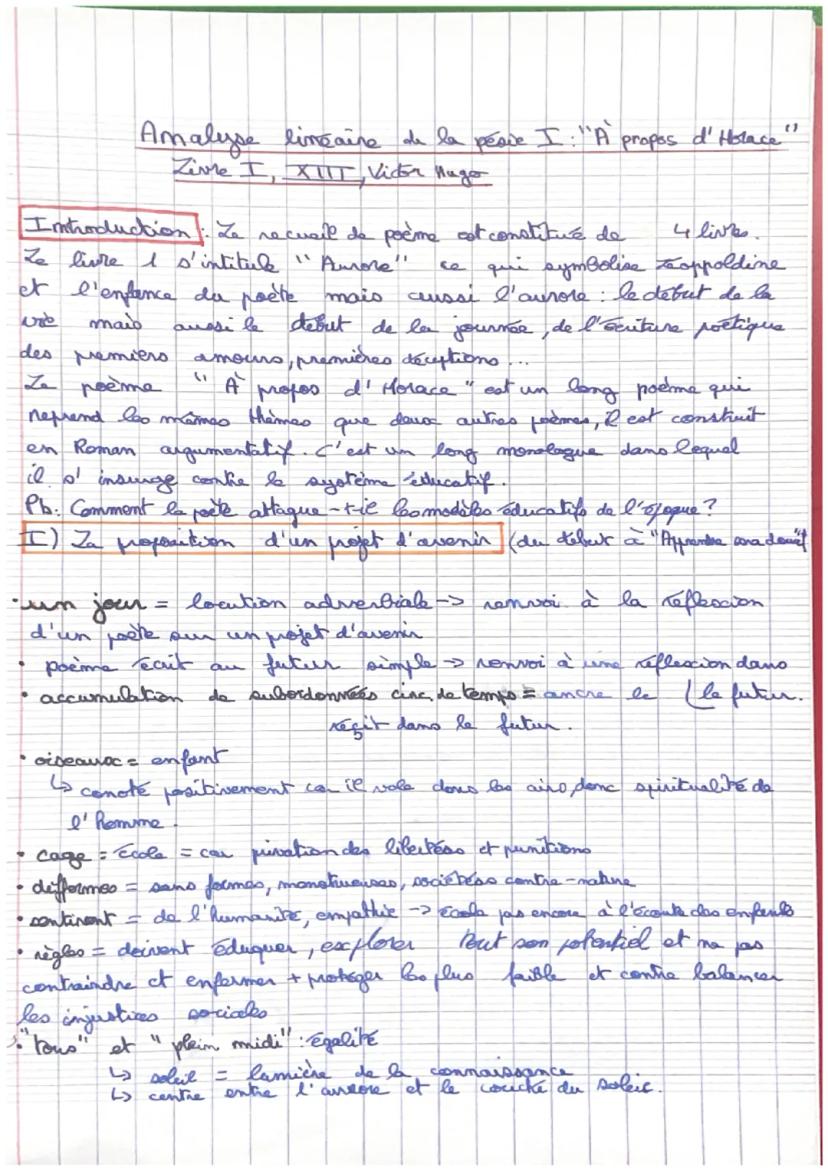 Analyse linéaire de la poésie I : "À propos d'Horace"
Livre I, XIII, Victor Hugo
Introduction : Le recueil de poème est constitué de 4 livres.
Le livre 1 s'intitule "Aurore" ce qui symbolise Léoppoldine
et l'enfance du poète mais aussi l'aurore : le début de la
vie mais aussi le début de la journée, de l'écriture poétique
des premiers amours, premières déceptions...
Le poème "À propos d'Horace" est un long poème qui
reprend les mêmes thèmes que deux autres poèmes, il est construit
en Roman argumentatif. C'est un long monologue dans lequel
il s'insurge contre le système éducatif.
Pb: Comment le poète attaque-t-il les modèles éducatifs de l'époque ?
I) La proposition d'un projet d'avenir (du début à "Apprendre
• un jour = locution adverbiale -> renvoi à la réflexion
d'un poète sur un projet d'avenir
• poème écrit au futur simple -> renvoi à une réflexion dans
• accumulation de subordonnées circ. de temps = ancre le ( le futur.
récit dans le futur.
• oiseaux = enfant
↳ conoté positivement car il vole dans les airs, donc spiritualité de
l'Homme.
• cage = école = car privation des libertés et punitions
• difformes = sans formes, monstrueuses, sociétés contre-nature
• sentiront = de l'humanité, empathie -> école pas encore à l'écoute des enfants
• règles = doivent éduquer, explorer tout son potentiel et na pas
contraindre et enfermer + protéger les plus faible et contre balancer
les injustices sociales
• "tous" et "plein midi" : égalité
↳ soleil = lumière de la connaissance
↳ centre entre l'aurore et le couché du soleil.